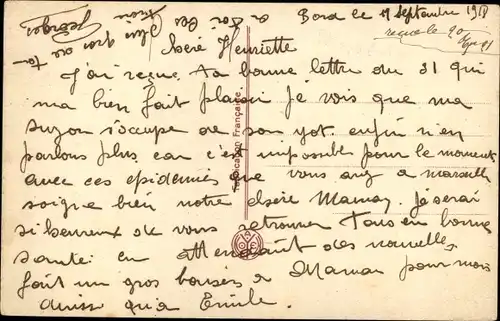 a Bord le 19 Septembre 1918
reçue le 20
Chère Henriette
J'ai reçue ta bonne lettre du 31 qui
ma bien fait plaisir je vois que ma
Suzon s'occupe de son yot enfin n'en
parlons plus car c'est impossible pour le moment
avec ces epidemies que vous avez a marseille
soigne bien notre chère Maman. je serai
si heureux de vous retrouver Tous en bonne
sante en attendant des nouvelles
fait un gros baiser a Maman pour moi
aussi qu'a Emile.
ton gros
plus
Georges
Fabrication Française